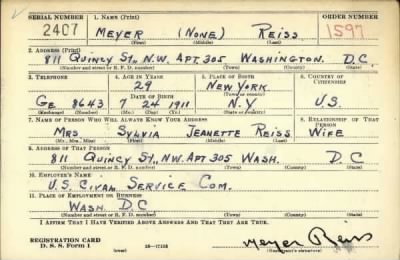 SERIAL NUMBER 1. NAME (Print) ORDER NUMBER
2407 MEYER (NONE) REISS 1597
(First) (Middle) (Last)
2. ADDRESS (Print)
811 QUINCY ST., N.W. APT. 305 WASHINGTON. D.C.
(Number and street or R. F. D. number) (Town) (County) (State)
3. TELEPHONE 4. AGE IN YEARS 5. PLACE OF BIRTH 6. COUNTRY OF CITIZENSHIP
29 NEW YORK
DATE OF BIRTH (Town or county)
GE. 8643 7 24 1911 N.Y U.S.
(Exchange) (Number) (Mo.) (Day) (Yr.) (State or country)
7. NAME OF PERSON WHO WILL ALWAYS KNOW YOUR ADDRESS 8. RELATIONSHIP OF THAT PERSON
MRS SYLVIA JEANETTE REISS WIFE
(Mr., Mrs., Miss) (First) (Middle) (Last)
9. ADDRESS OF THAT PERSON
811 QUINCY ST, N.W. APT 305 WASH. D C
(Number and street or R. F. D. number) (Town) (County) (State)
10. EMPLOYER'S NAME
U.S. CIVIL SERVICE COM.
11. PLACE OF EMPLOYMENT OR BUSINESS
WASH. D C
(Number and street or R. F. D. number) (Town) (County) (State)
I AFFIRM THAT I HAVE VERIFIED ABOVE ANSWERS AND THAT THEY ARE TRUE.
REGISTRATION CARD
D. S. S. Form 1 (over) 16—17105 Meyer Reiss
(Registrant's signature)